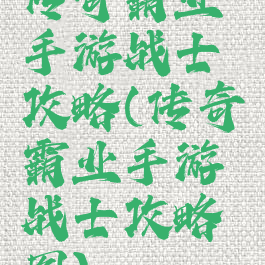 传奇霸业
手游战士
攻略(传奇
霸业手游
战士攻略
图)